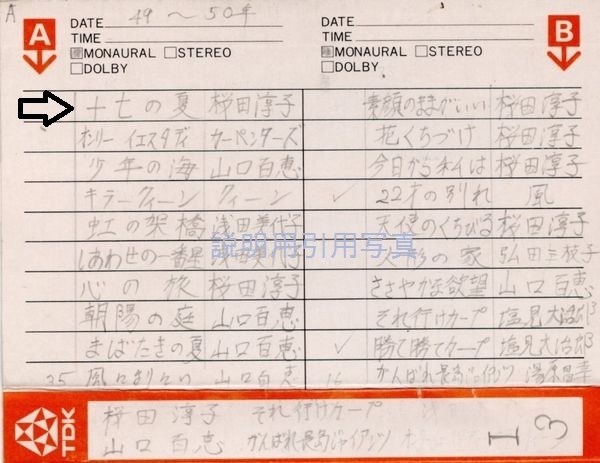 A 49〜50年
A DATE
TIME
MONAURAL STEREO
DOLBY
B DATE
TIME
MONAURAL STEREO
DOLBY
十七の夏 桜田淳子
オンリーイエスタディ カーペンターズ
少年の海 山口百恵
キラークィーン クィーン
虹の架橋 浅田美代子
しあわせの一番星 浅田美代子
心の旅 桜田淳子
朝陽の庭 山口百恵
まばたきの夏 山口百恵
35 山口百恵
素顔のままがいい 桜田淳子
花くちづけ 桜田淳子
今日から私は 桜田淳子
22才の別れ 風
天使のくちびる 桜田淳子
人形の家 弘田三枝子
ささやかな欲望 山口百恵
それ行けカープ 塩見大治郎
勝て勝てカープ 塩見大治郎
がんばれ長島ジャイアンツ 湯原昌幸
説明用引用写真
TDK
桜田淳子 それ行けカープ
山口百恵 がんばれ長島ジャイアンツ
13